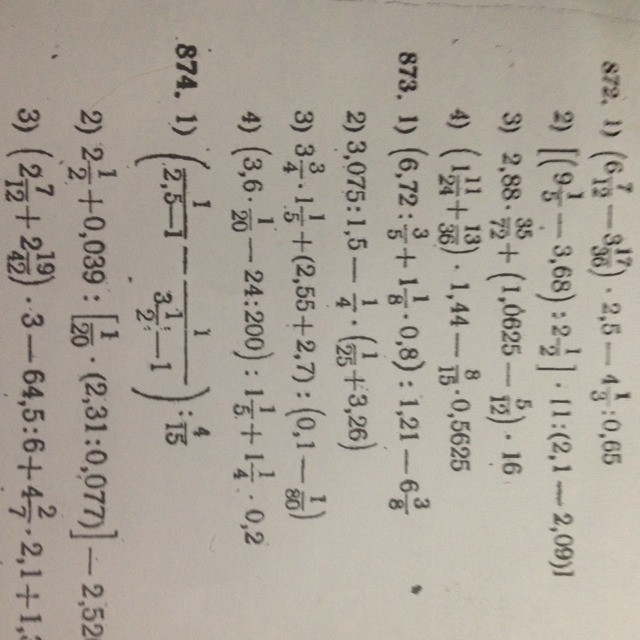 872. 1) (6 7/12 − 3 17/36) · 2,5 − 4 1/3 : 0,65
2) [(9 1/5 − 3,68) : 2 1/2] · 11 : (2,1 − 2,09)]
3) 2,88 · 35/72 + (1,0625 − 5/12) · 16
4) (1 11/24 + 13/36) · 1,44 − 8/15 · 0,5625
873. 1) (6,72 : 3/5 + 1 1/8 · 0,8) : 1,21 − 6 3/8
2) 3,075 : 1,5 − 1/4 · (1/25 + 3,26)
3) 3 3/4 · 1 1/5 + (2,55 + 2,7) : (0,1 − 1/80)
4) (3,6 · 1/20 − 24 : 200) : 1 1/5 + 1 1/4 · 0,2
874. 1) (1/(2,5−1) − 1/(3 1/2 : −1)) : 4/15
2) 2 1/2 + 0,039 : [1/20 · (2,31 : 0,077)] − 2,52
3) (2 7/12 + 2 19/42) · 3 − 64,5 : 6 + 4 2/7 · 2,1 + 1,